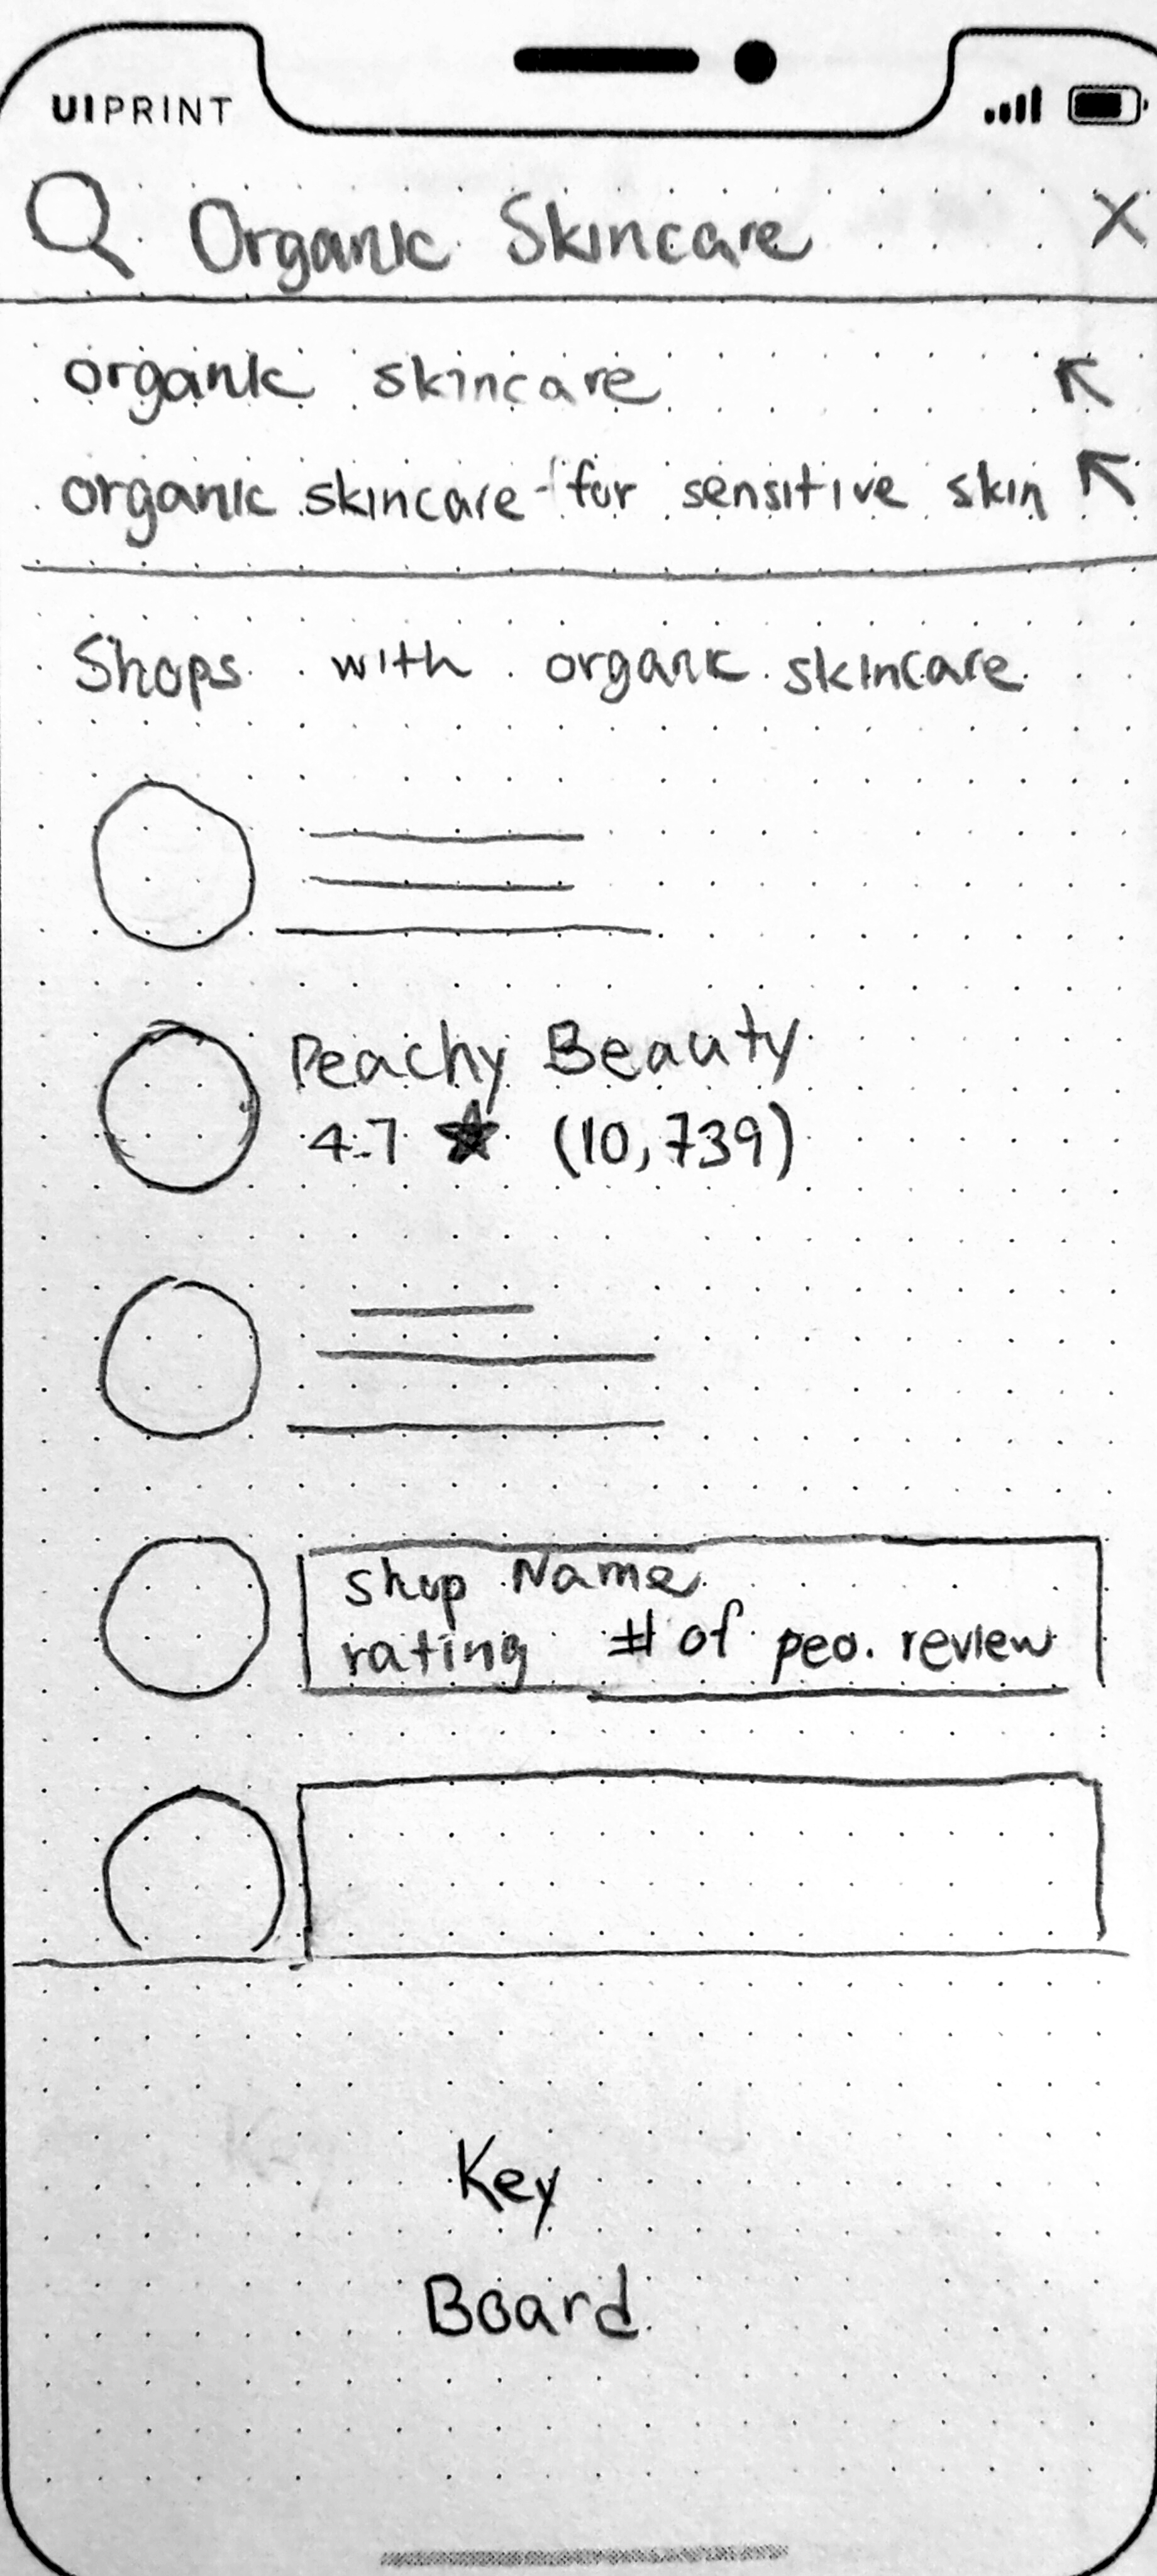 UIPRINT
Organic Skincare X
organic skincare
organic skincare for sensitive skin
Shops with organic skincare
Peachy Beauty
4.7 ★ (10,739)
Shop Name
rating # of peo. review
Key
Board